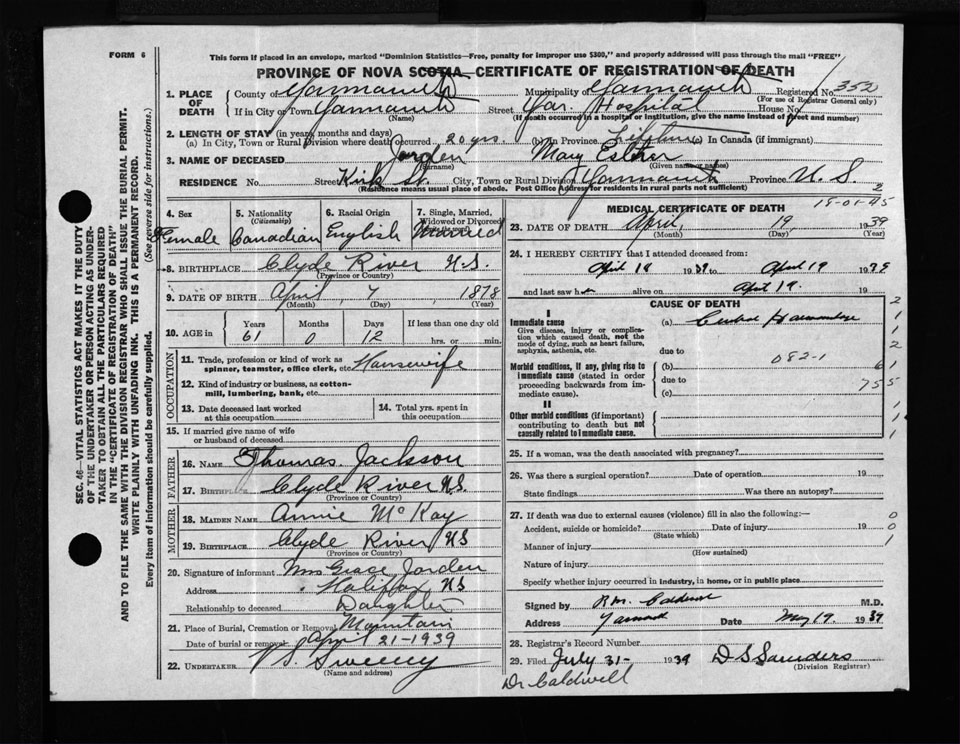 FORM 6
This form if placed in an envelope, marked "Dominion Statistics—Free, penalty for improper use $300," and properly addressed will pass through the mail "FREE"
PROVINCE OF NOVA SCOTIA—CERTIFICATE OF REGISTRATION OF DEATH
1. PLACE OF DEATH
County of Yarmouth
Municipality of Yarmouth Registered No. 352
(For use of Registrar General only)
If in City or Town Yarmouth Street Yar. Hospital House No.
(Name) (If death occurred in a hospital or institution, give the name instead of street and number)
2. LENGTH OF STAY (in years, months and days)
(a) In City, Town or Rural Division where death occurred 20 yrs. (b) In Province Lifetime (c) In Canada (if immigrant)
3. NAME OF DECEASED Jorden Mary Esther
(Surname) (Given name or names)
RESIDENCE No. Street Kirk St. City, Town or Rural Division Yarmouth Province N. S.
(Residence means usual place of abode. Post Office Address for residents in rural parts not sufficient)
2
15-01-45
4. Sex Female
5. Nationality (Citizenship) Canadian
6. Racial Origin English
7. Single, Married, Widowed or Divorced (Write the word) Married
8. BIRTHPLACE Clyde River N.S.
(Province or Country)
9. DATE OF BIRTH April, 7 1878
(Month) (Day) (Year)
10. AGE in Years 61 Months 0 Days 12 If less than one day old hrs. or min.
OCCUPATION
11. Trade, profession or kind of work as spinner, teamster, office clerk, etc. Housewife
12. Kind of industry or business, as cotton-mill, lumbering, bank, etc.
13. Date deceased last worked at this occupation
14. Total yrs. spent in this occupation
15. If married give name of wife or husband of deceased
FATHER
16. NAME Thomas Jackson
17. BIRTHPLACE Clyde River N.S.
(Province or Country)
MOTHER
18. MAIDEN NAME Annie McKay
19. BIRTHPLACE Clyde River N.S
(Province or Country)
20. Signature of informant Mrs Grace Jorden
Address Halifax N.S
Relationship to deceased Daughter
21. Place of Burial, Cremation or Removal Mountain
Date of burial or removal April 21-1939
22. UNDERTAKER V.S. Sweeny
(Name and address)
MEDICAL CERTIFICATE OF DEATH
23. DATE OF DEATH April, 19, 1939
(Month) (Day) (Year)
24. I HEREBY CERTIFY that I attended deceased from
April 18 1939 to April 19 1939
and last saw her alive on April 19. 19
CAUSE OF DEATH
I
Immediate cause
Give disease, injury or complication which caused death, not the mode of dying, such as heart failure, asphyxia, asthenia, etc.
(a) Cerebral Haemorrhage
due to
082-1
Morbid conditions, if any, giving rise to immediate cause (stated in order proceeding backwards from immediate cause).
(b)
due to
(c)
61
755
II
Other morbid conditions (if important) contributing to death but not causally related to immediate cause.
25. If a woman, was the death associated with pregnancy?
26. Was there a surgical operation? Date of operation 19
State findings Was there an autopsy?
27. If death was due to external causes (violence) fill in also the following:—
Accident, suicide or homicide? Date of injury 19
(State which)
Manner of injury
(How sustained)
Nature of injury
Specify whether injury occurred in industry, in home, or in public place
Signed by R.M. Caldwell M.D.
Address Yarmouth Date May 19 1939
28. Registrar's Record Number
29. Filed July 31- 1939 D S Saunders
(Division Registrar)
Dr Caldwell
SEC. 46—VITAL STATISTICS ACT MAKES IT THE DUTY OF THE UNDERTAKER OR PERSON ACTING AS UNDERTAKER TO OBTAIN ALL THE PARTICULARS REQUIRED IN THE "CERTIFICATE OF REGISTRATION OF DEATH" AND TO FILE THE SAME WITH THE DIVISION REGISTRAR WHO SHALL ISSUE THE BURIAL PERMIT.
WRITE PLAINLY WITH UNFADING INK. THIS IS A PERMANENT RECORD.
Every item of information should be carefully supplied. (See reverse side for instructions.)